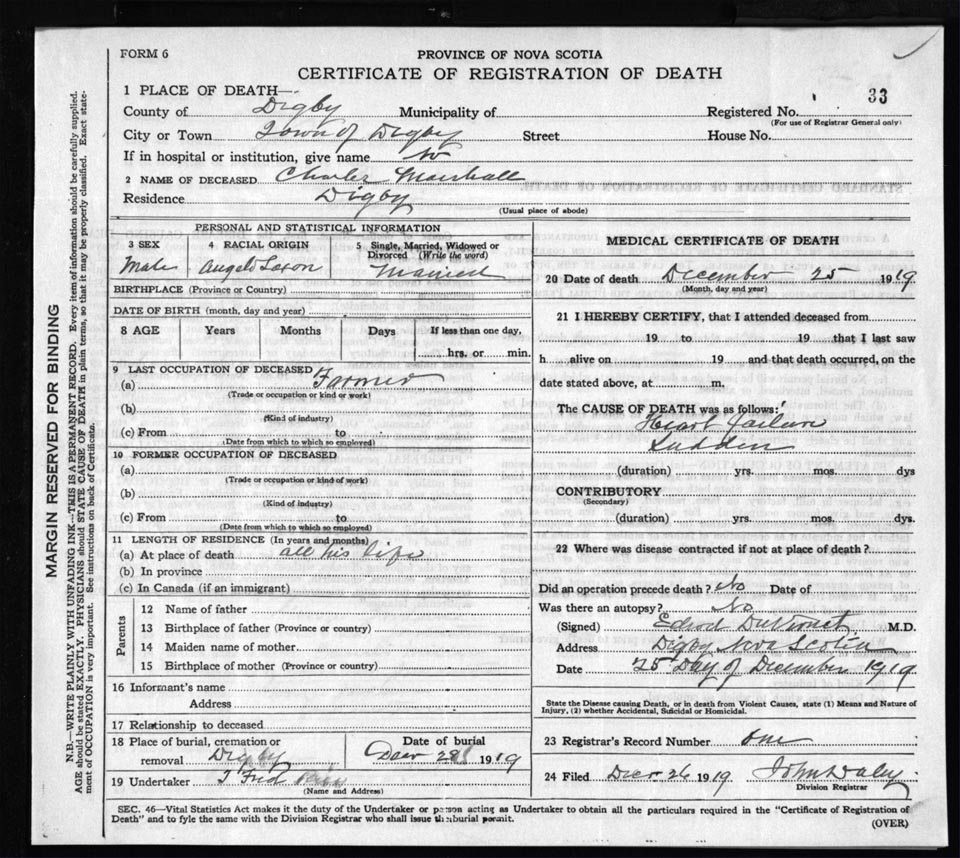 FORM 6
PROVINCE OF NOVA SCOTIA
CERTIFICATE OF REGISTRATION OF DEATH
1 PLACE OF DEATH—
33
County of Digby Municipality of Registered No.
(For use of Registrar General only)
City or Town Town of Digby Street House No.
If in hospital or institution, give name no
2 NAME OF DECEASED Charles Marshall
Residence Digby
(Usual place of abode)
PERSONAL AND STATISTICAL INFORMATION
3 SEX 4 RACIAL ORIGIN 5 Single, Married, Widowed or Divorced (Write the word)
Male Angelo Saxon Married
BIRTHPLACE (Province or Country)
DATE OF BIRTH (month, day and year)
8 AGE Years Months Days If less than one day,
hrs. or min.
9 LAST OCCUPATION OF DECEASED
(a) Farmer
(Trade or occupation or kind or work)
(b)
(Kind of industry)
(c) From to
(Date from which to which so employed)
10 FORMER OCCUPATION OF DECEASED
(a)
(Trade or occupation or kind of work)
(b)
(Kind of industry)
(c) From to
(Date from which to which so employed)
11 LENGTH OF RESIDENCE (In years and months)
(a) At place of death all his life
(b) In province
(c) In Canada (if an immigrant)
Parents
12 Name of father
13 Birthplace of father (Province or country)
14 Maiden name of mother
15 Birthplace of mother (Province or country)
16 Informant's name
Address
17 Relationship to deceased
18 Place of burial, cremation or removal Digby
Date of burial
Decr 28 1919
19 Undertaker J Fred
(Name and Address)
MEDICAL CERTIFICATE OF DEATH
20 Date of death December 25 1919
(Month, day and year)
21 I HEREBY CERTIFY, that I attended deceased from
19 to 19 that I last saw
h alive on 19 and that death occurred, on the
date stated above, at m.
The CAUSE OF DEATH was as follows:
Heart failure
Sudden
(duration) yrs. mos. dys
CONTRIBUTORY
(Secondary)
(duration) yrs. mos. dys.
22 Where was disease contracted if not at place of death?
Did an operation precede death? No Date of
Was there an autopsy? No
(Signed) M.D.
Address Digby Nova Scotia
Date 25 Day of December 1919
State the Disease causing Death, or in death from Violent Causes, state (1) Means and Nature of
Injury, (2) whether Accidental, Suicidal or Homicidal.
23 Registrar's Record Number one
24 Filed Decr 26 1919 John Daley
Division Registrar
SEC. 46—Vital Statistics Act makes it the duty of the Undertaker or person acting as Undertaker to obtain all the particulars required in the "Certificate of Registration of
Death" and to fyle the same with the Division Registrar who shall issue the burial permit.
(OVER)
MARGIN RESERVED FOR BINDING
N.B.—WRITE PLAINLY WITH UNFADING INK—THIS IS A PERMANENT RECORD. Every item of information should be carefully supplied.
AGE should be stated EXACTLY. PHYSICIANS should STATE CAUSE OF DEATH in plain terms, so that it may be properly classified. Exact state-
ment of OCCUPATION is very important. See instructions on back of Certificate.